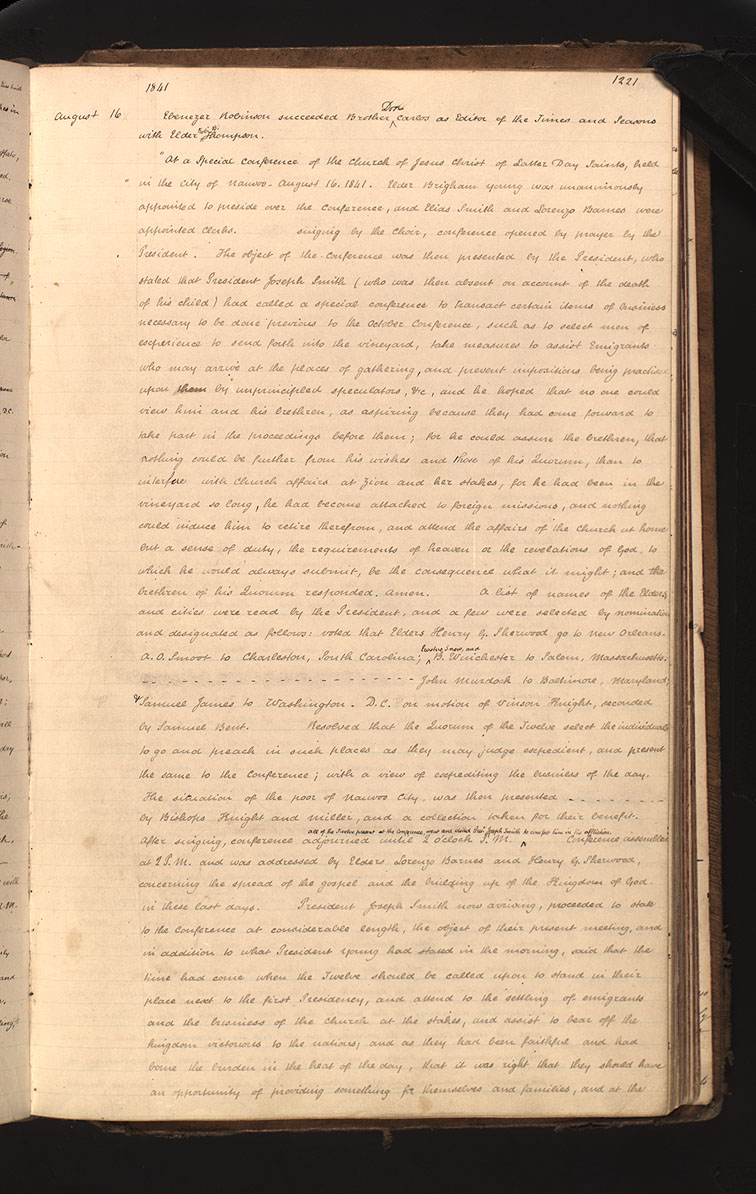 1841
1221
August 16 Ebenezer Robinson succeeded Brother Don ^ Carlos as Editor of the Times and Seasons
with Elder Thompson.
"At a Special Conference of the Church of Jesus Christ of Latter Day Saints, held
in the City of Nauvoo August 16. 1841. Elder Brigham Young was unanimously
appointed to preside over the Conference, and Elias Smith and Lorenzo Barnes were
appointed Clerks. singing by the Choir, conference opened by prayer by the
President. The object of the conference was then presented by the President, who
stated that President Joseph Smith (who was then absent on account of the death
of his child) had called a special conference to transact certain items of business
necessary to be done previous to the October Conference, such as to select men of
experience to send forth into the vineyard, take measures to assist Emigrants
who may arrive at the places of gathering, and prevent impositions being practised
upon them by unprincipled speculators, &c, and he hoped that no one could
view him and his brethren, as aspiring because they had come forward to
take part in the proceedings before them; for he could assure the brethren, that
nothing could be further from his wishes and those of his Quorum, than to
interfere with Church affairs at Zion and her stakes, for he had been in the
vineyard so long, he had become attached to foreign missions, and nothing
could induce him to retire therefrom, and attend the affairs of the church at home
but a sense of duty, the requirements of heaven or the revelations of God, to
which he would always submit, be the consequence what it might; and the
brethren of his Quorum responded. Amen. A list of names of the Elders,
and cities were read by the President, and a few were selected by nomination
and designated as follows: voted that Elders Henry G. Sherwood go to New Orleans.
A. O. Smoot to Charleston, South Carolina; Erastus Snow, and ^ B. Winchester to Salem, Massachusetts.
John Murdock to Baltimore, Maryland;
& Samuel James to Washington. D.C. on motion of Vinson Knight, seconded
by Samuel Bent. Resolved that the Quorum of the Twelve select the individuals
to go and preach in such places as they may judge expedient, and present
the same to the Conference; with a view of expediting the business of the day.
The situation of the poor of Nauvoo City was then presented
by Bishops Knight and Miller, and a collection taken for their benefit.
all of the Twelve present at the conference, went and visited Prest Joseph Smith to comfort him in his affliction.
After singing, conference adjourned until 2 O'clock P.M. ^ Conference assembled
at 2 P.M. and was addressed by Elders Lorenzo Barnes and Henry G. Sherwood,
concerning the spread of the gospel and the building up of the Kingdom of God
in these last days. President Joseph Smith now arriving, proceeded to state
to the Conference at considerable length, the object of their present meeting, and
in addition to what President Young had stated in the morning, said that the
time had come when the Twelve should be called upon to stand in their
place next to the first Presidency, and attend to the settling of emigrants
and the business of the church at the stakes, and assist to bear off the
kingdom victorious to the nations; and as they had been faithful and had
borne the burden in the heat of the day, that it was right that they should have
an opportunity of providing something for themselves and families, and at the